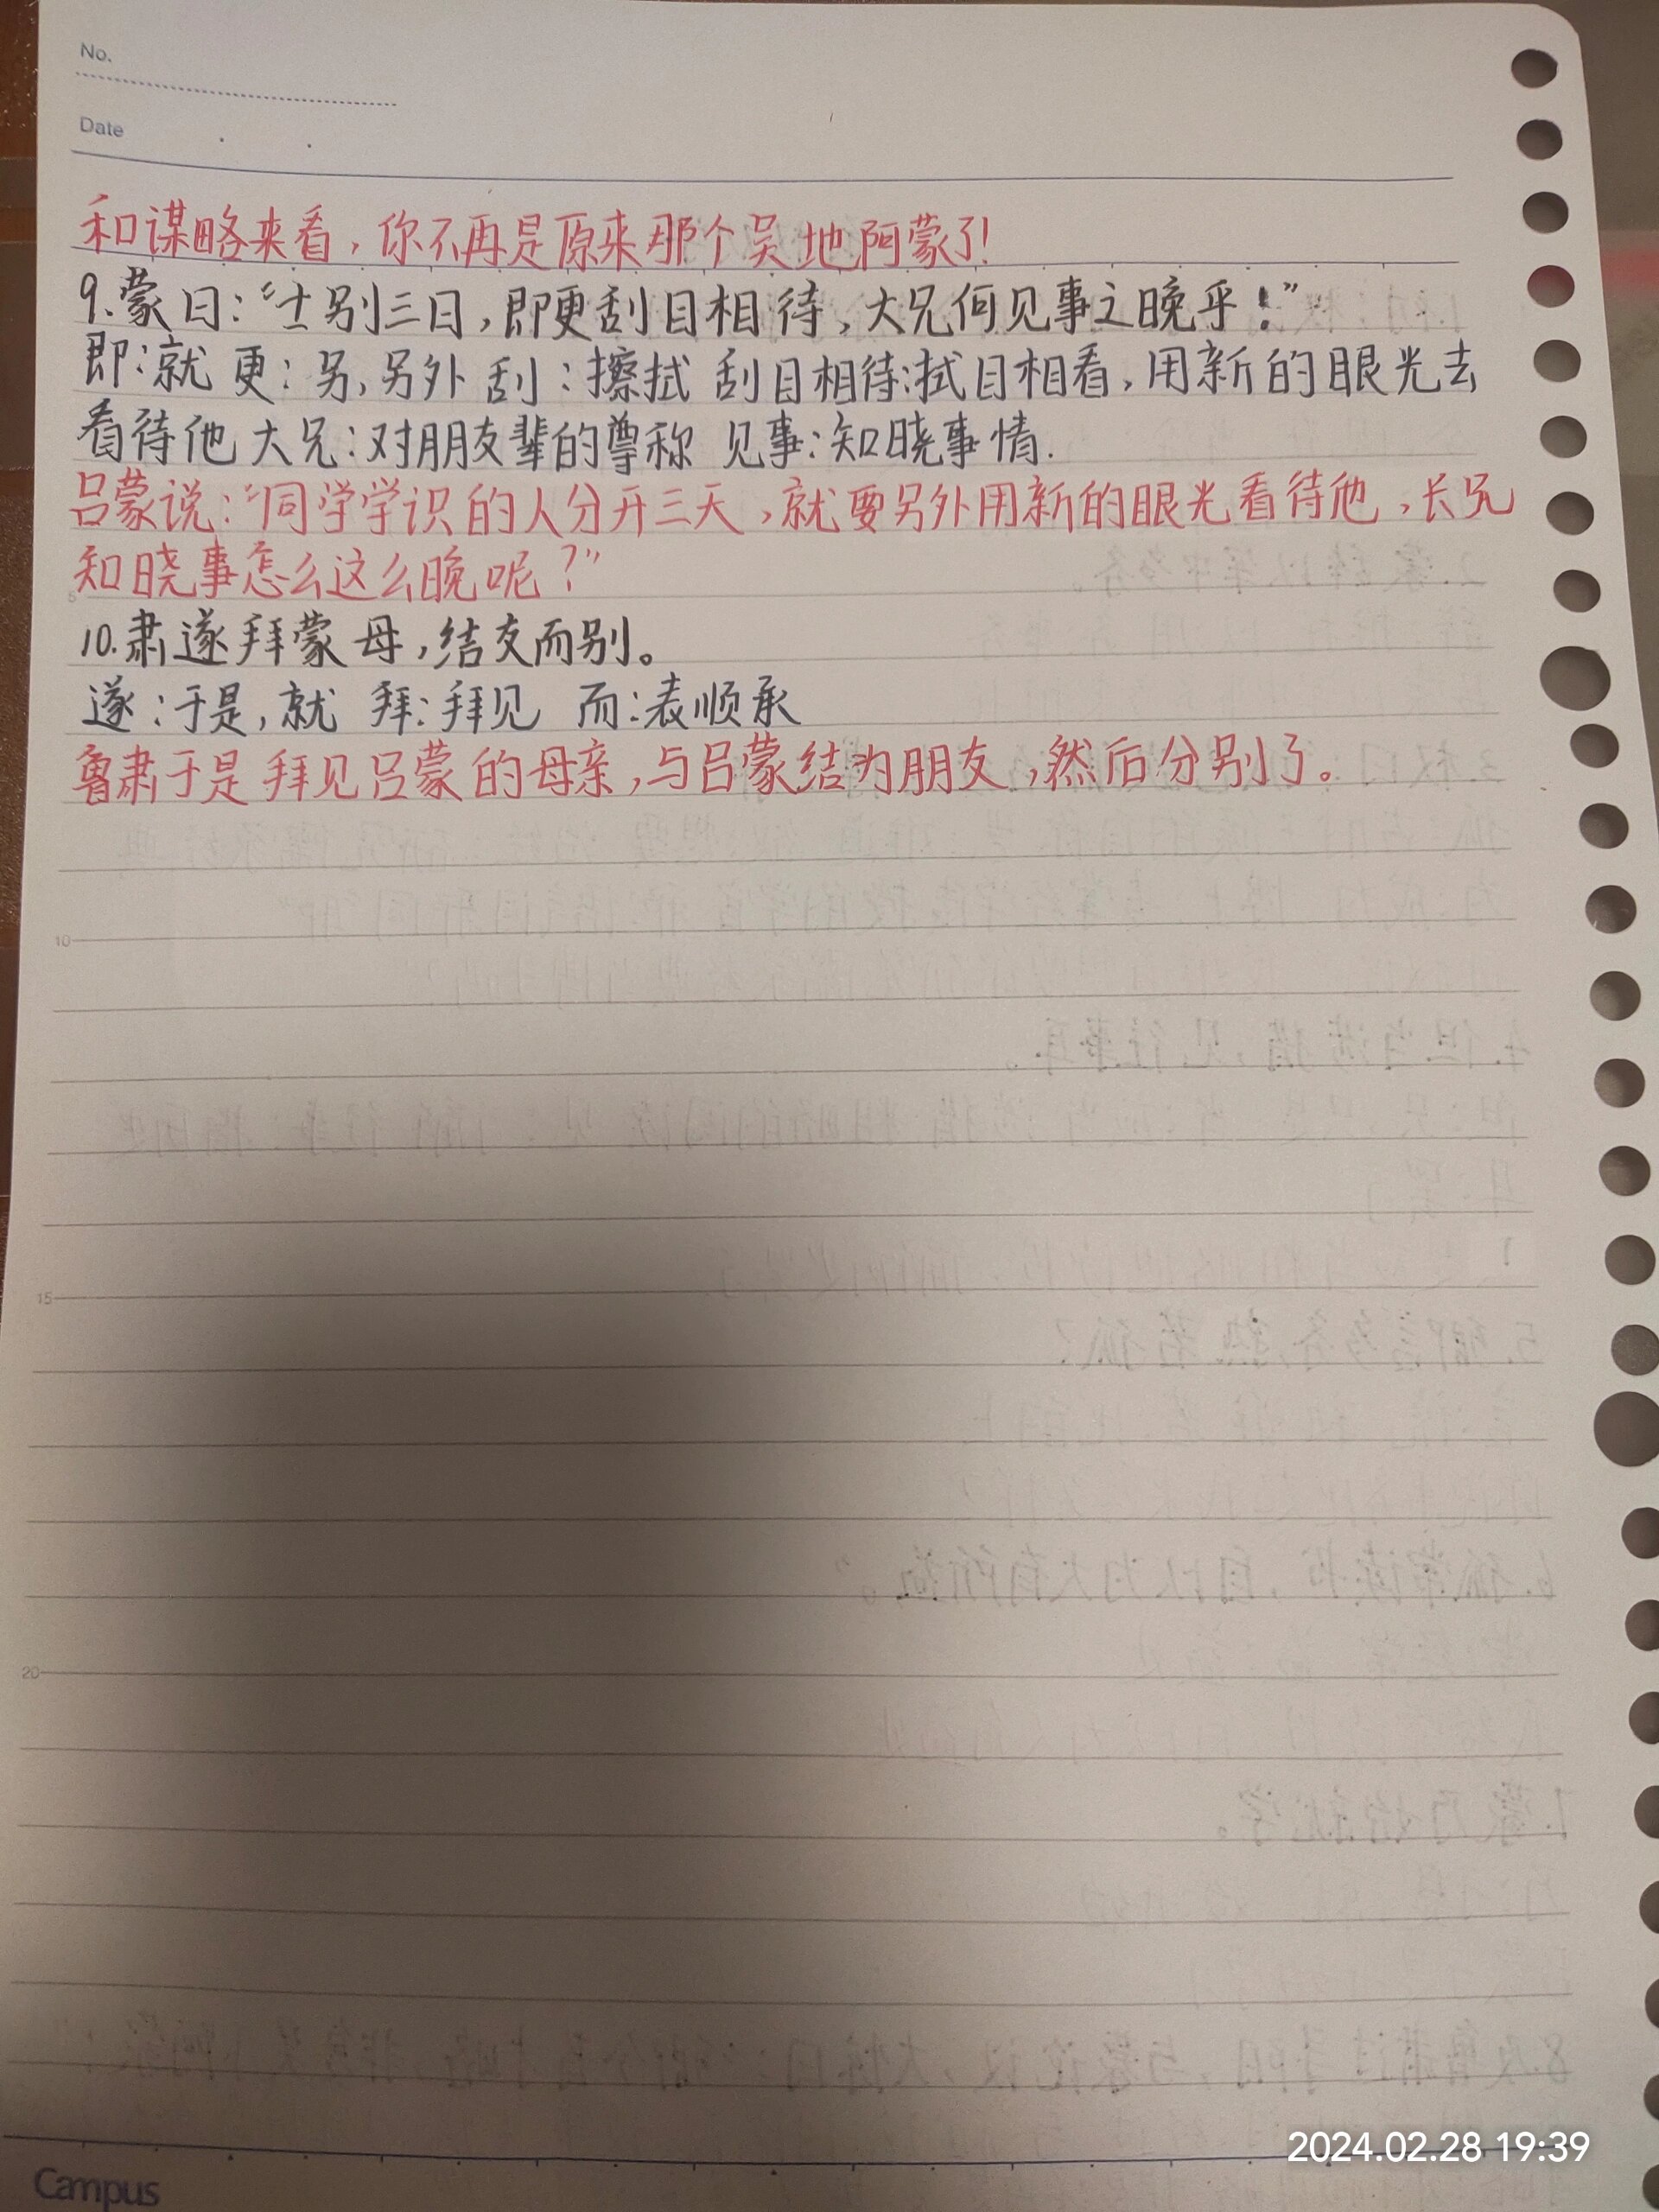 No.
Date
和谋略来看，你不再是原来那个吴地阿蒙了！
9.蒙曰：“士别三日，即更刮目相待，大兄何见事之晚乎！”
即：就 更：另，另外 刮：擦拭 刮目相待：拭目相看，用新的眼光去
看待他 大兄：对朋友辈的尊称 见事：知晓事情.
吕蒙说：“同学学识的人分开三天，就要另外用新的眼光看待他，长兄
知晓事怎么这么晚呢？”
10.肃遂拜蒙母，结友而别。
遂：于是，就 拜：拜见 而：表顺承
鲁肃于是拜见吕蒙的母亲，与吕蒙结为朋友，然后分别了。
5
10
15
20
2024.02.28 19:39
Campus